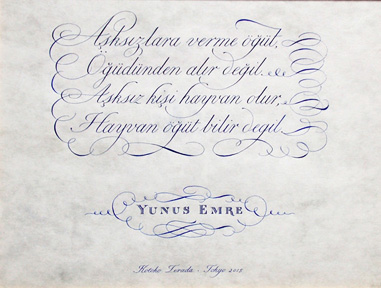 Aşksızlara verme öğüt,
Öğüdünden alır değil.
Aşksız kişi hayvan olur,
Hayvan öğüt bilir değil
YUNUS EMRE
Tokyo